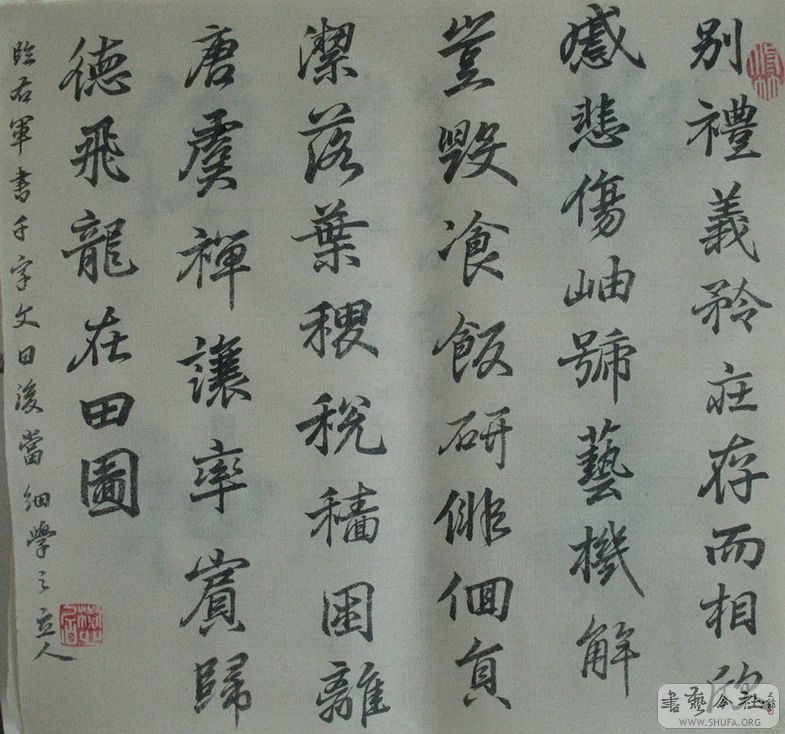 別禮義矜莊存而相欣
感悲傷岫號藝機解
豈毀飡飯研俳佪負
潔落葉稷稅穡困離
唐虞禪讓率賓歸
德飛龍在田圖
臨右軍書千字文日後當細學之立人
書藝公社
WWW.SHUFA.ORG